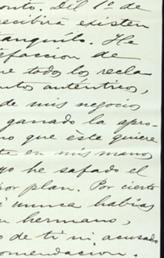 onto. Del 1º de
recibirá existen
tranquilo. He
sfaccion de
ue todos los recla
ntos auténticos,
de mis negocios
ganado la apro-
no que éste quiere
te en mis manos
yo he safado el
or plan. Por cierto
i nunca habías
u hermano,
o de ti ni acusado
comendacion.